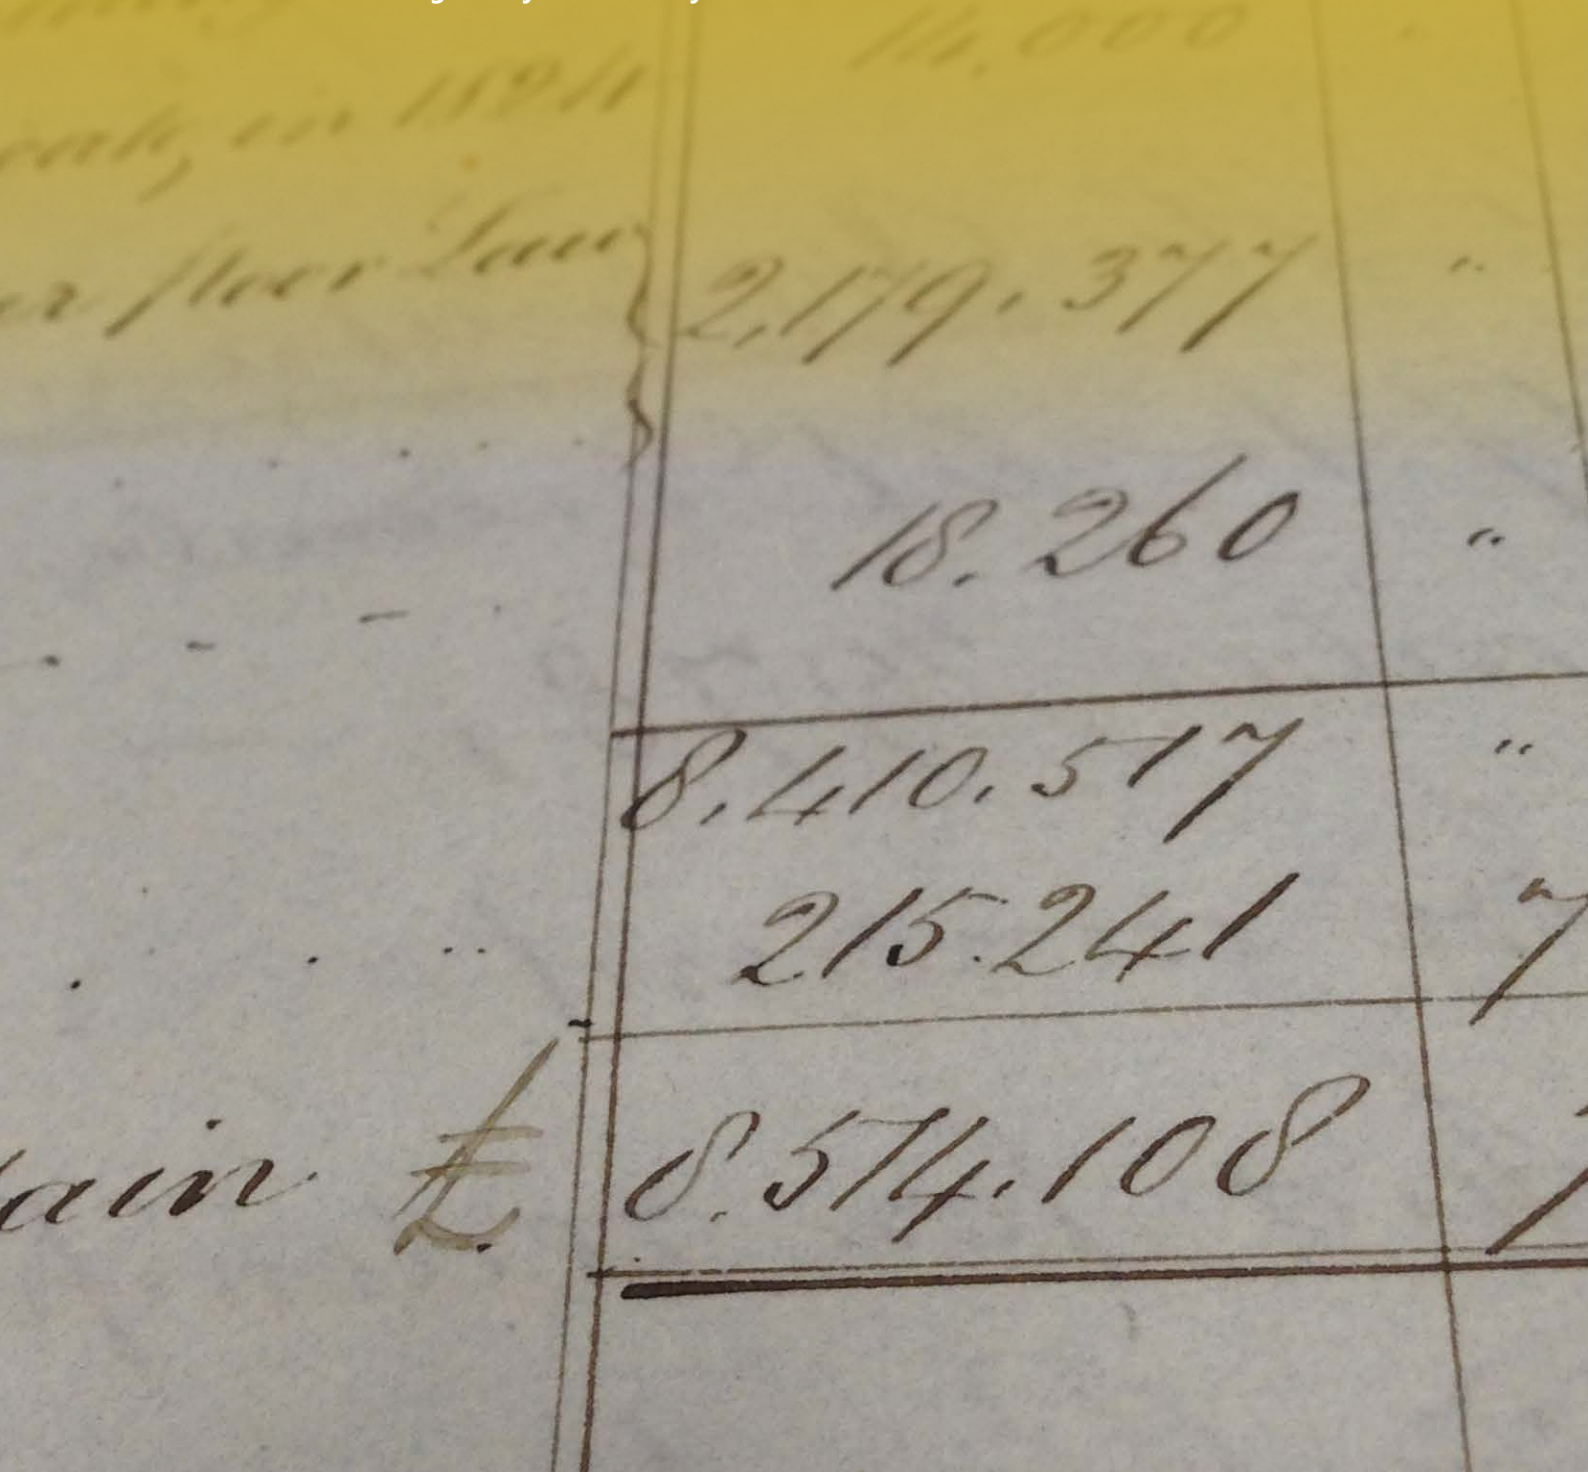 14,000
in 1824
floor Law 2,179,377 "
18.260 "
8,410,517 "
215.241 7
tain £ 8.574,108 7